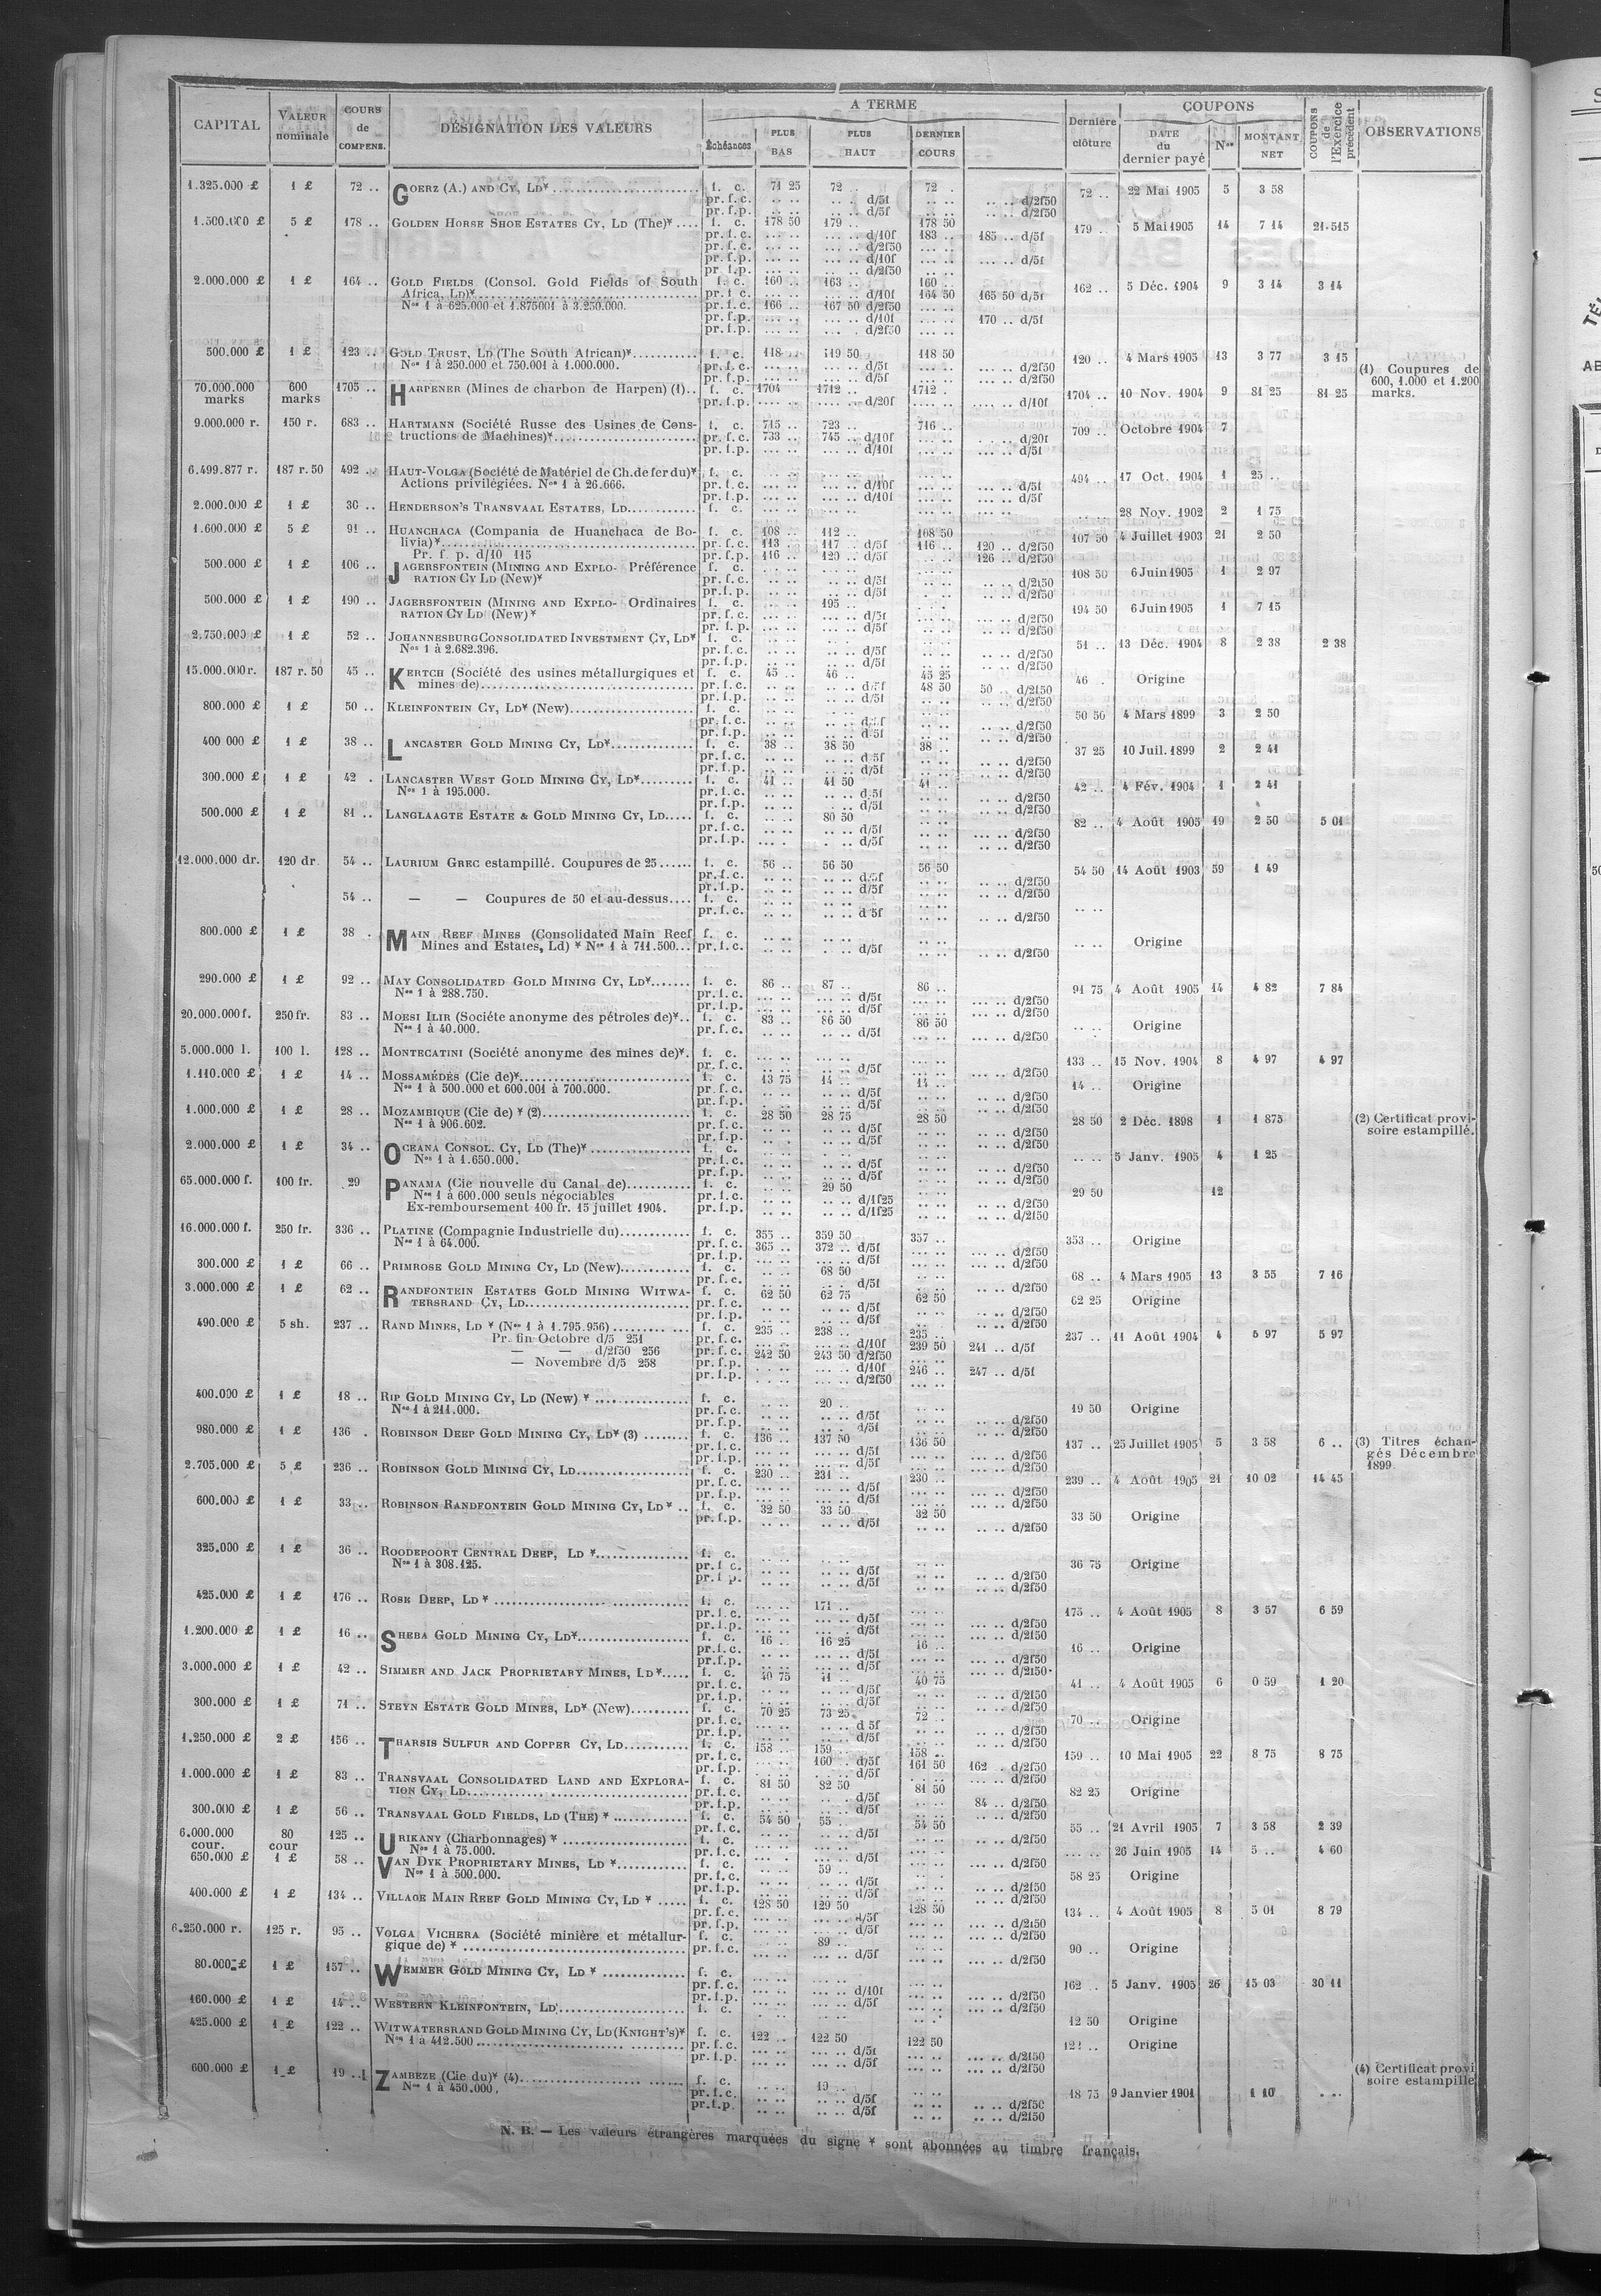 CAPITAL VALEUR nominale COURS de COMPENS. DÉSIGNATION DES VALEURS A TERME Échéances PLUS BAS PLUS HAUT DERNIER COURS Dernière clôture COUPONS DATE du dernier payé Nos MONTANT NET COUPONS de l'Exercice précédent OBSERVATIONS
1.325.000 £ 1 £ 72 .. GOERZ (A.) AND CY, LD* f. c. 71 25 72 .. 72 . 72 .. 22 Mai 1905 5 3 58
pr. f. c. .. .. .. .. d/5f .. .. .. .. d/2f50
pr. f. p. .. .. .. .. d/5f .. .. .. .. d/2f50
1.500.000 £ 5 £ 178 .. GOLDEN HORSE SHOE ESTATES CY, LD (The)* .... f. c. 178 50 179 .. 178 50 179 .. 5 Mai 1905 14 7 14 21.515
pr. f. c. ... .. ... .. d/10f 183 .. 185 .. d/5f
pr. f. c. ... .. ... .. d/2f50
pr. f. p. ... .. ... .. d/10f ... .. ... .. d/5f
pr. f. p. ... .. ... .. d/2f50
2.000.000 £ 1 £ 164 .. GOLD FIELDS (Consol. Gold Fields of South f. c. 160 .. 163 .. 160 .. 162 .. 5 Déc. 1904 9 3 14 3 14
Africa, Ld)* pr. f. c. ... .. ... .. d/10f 164 50 165 50 d/5f
Nos 1 à 625.000 et 1.875001 à 3.250.000. pr. f. c. 166 .. 167 50 d/2f50
pr. f. p. ... .. ... .. d/10f ... .. 170 .. d/5f
pr. f. p. ... .. ... .. d/2f50
500.000 £ 1 £ 123 .. GOLD TRUST, LD (The South African)* f. c. 118 .. 119 50 118 50 120 .. 4 Mars 1905 13 3 77 3 15
Nos 1 à 250.000 et 750.001 à 1.000.000. pr. f. c. ... .. ... .. d/5f ... .. ... .. d/2f50
pr. f. p. ... .. ... .. d/5f ... .. ... .. d/2f50
70.000.000 marks 600 marks 1705 .. HARPENER (Mines de charbon de Harpen) (1) .. f. c. 1704 1712 .. 1712 . 1704 .. 10 Nov. 1904 9 81 25 81 25 (1) Coupures de 600, 1.000 et 1.200 marks.
pr. f. p. .... .. .... .. d/20f .... .. d/10f
9.000.000 r. 150 r. 683 .. HARTMANN (Société Russe des Usines de Cons- f. c. 715 .. 723 .. 716 .. 709 .. Octobre 1904 7
tructions de Machines)* pr. f. c. 733 .. 745 .. d/10f ... .. d/20f
pr. f. p. ... .. ... .. d/10f ... .. d/5f
6.499.877 r. 187 r. 50 492 .. HAUT-VOLGA (Société de Matériel de Ch. de fer du)* f. c. 494 .. 17 Oct. 1904 1 25 ..
Actions privilégiées. Nos 1 à 26.666. pr. f. c. ... .. ... .. d/10f ... .. d/5f
pr. f. p. ... .. ... .. d/10f ... .. d/5f
2.000.000 £ 1 £ 30 .. HENDERSON'S TRANSVAAL ESTATES, LD f. c. 28 Nov. 1902 2 1 75
1.600.000 £ 5 £ 91 .. HUANCHACA (Compania de Huanchaca de Bo- f. c. 108 .. 112 .. 108 50 107 50 4 Juillet 1903 21 2 50
livia)* pr. f. c. 113 .. 117 .. d/5f 116 .. 120 .. d/2f50
Pr. f. p. d/10 115 pr. f. p. 116 .. 120 .. d/5f ... .. 126 .. d/2f50
500.000 £ 1 £ 106 .. JAGERSFONTEIN (MINING AND EXPLO- Préférence f. c. 108 50 6 Juin 1905 1 2 97
RATION CY LD (New)* pr. f. c. ... .. ... .. d/5f ... .. d/2f50
pr. f. p. ... .. ... .. d/5f ... .. d/2f50
500.000 £ 1 £ 190 .. JAGERSFONTEIN (MINING AND EXPLO- Ordinaires f. c. 195 .. 194 50 6 Juin 1905 1 7 15
RATION CY LD (New)* pr. f. c. ... .. ... .. d/5f ... .. d/2f50
pr. f. p. ... .. ... .. d/5f ... .. d/2f50
2.750.000 £ 1 £ 52 .. JOHANNESBURG CONSOLIDATED INVESTMENT CY, LD* f. c. 51 .. 13 Déc. 1904 8 2 38 2 38
Nos 1 à 2.682.396. pr. f. c. .. .. .. .. d/5f .. .. d/2f50
pr. f. p. .. .. .. .. d/5f .. .. d/2f50
15.000.000 r. 187 r. 50 45 .. KERTCH (Société des usines métallurgiques et f. c. 45 .. 46 .. 45 25 46 . Origine
mines de) pr. f. c. .. .. .. .. d/5f 48 50 50 .. d/2f50
pr. f. p. .. .. .. .. d/5f .. .. d/2f50
800.000 £ 1 £ 50 .. KLEINFONTEIN CY, LD* (New) f. c. 50 50 4 Mars 1899 3 2 50
pr. f. c. .. .. .. .. d/5f .. .. d/2f50
pr. f. p. .. .. .. .. d/5f .. .. d/2f50
400 000 £ 1 £ 38 .. LANCASTER GOLD MINING CY, LD* f. c. 38 .. 38 50 38 .. 37 25 10 Juil. 1899 2 2 41
pr. f. c. .. .. .. .. d/5f .. .. d/2f50
pr. f. p. .. .. .. .. d/5f .. .. d/2f50
300.000 £ 1 £ 42 . LANCASTER WEST GOLD MINING CY, LD* f. c. 41 .. 41 50 41 .. 42 .. 4 Fév. 1904 1 2 41
Nos 1 à 195.000. pr. f. c. .. .. .. .. d/5f .. .. d/2f50
pr. f. p. .. .. .. .. d/5f .. .. d/2f50
500.000 £ 1 £ 81 .. LANGLAAGTE ESTATE & GOLD MINING CY, LD f. c. 80 50 82 .. 4 Août 1905 19 2 50 5 01
pr. f. c. .. .. .. .. d/5f .. .. d/2f50
pr. f. p. .. .. .. .. d/5f .. .. d/2f50
12.000.000 dr. 120 dr. 54 .. LAURIUM GREC estampillé. Coupures de 25 f. c. 56 .. 56 50 56 50 54 50 14 Août 1903 59 1 49
pr. f. c. .. .. .. .. d/5f .. .. d/2f50
pr. f. p. .. .. .. .. d/5f .. .. d/2f50
54 .. — — Coupures de 50 et au-dessus f. c. .. ..
pr. f. c. .. .. .. .. d 5f .. .. d/2f50
800.000 £ 1 £ 38 . MAIN REEF MINES (Consolidated Main Reef f. c. .. .. Origine
Mines and Estates, Ld) * Nos 1 à 711.500 pr. f. c. .. .. . .. d/5f .. .. d/2f50
290.000 £ 1 £ 92 .. MAY CONSOLIDATED GOLD MINING CY, LD* f. c. 86 .. 87 .. 86 .. 91 75 4 Août 1905 14 4 82 7 84
Nos 1 à 288.750. pr. f. c. ... .. ... .. d/5f ... .. d/2f50
pr. f. p. ... .. ... .. d/5f ... .. d/2f50
20.000.000 f. 250 fr. 83 .. MOESI ILIR (Sociéte anonyme des pétroles de)* f. c. 83 .. 86 50 86 50 .. .. Origine
Nos 1 à 40.000. pr. f. c. .. .. .. .. d/5f .. .. d/2f50
5.000.000 l. 100 l. 128 .. MONTECATINI (Société anonyme des mines de)* f. c. 133 .. 15 Nov. 1904 8 4 97 4 97
pr. f. c. ... .. ... .. d/5f ... .. d/2f50
1.110.000 £ 1 £ 14 .. MOSSAMÉDÈS (Cie de)* f. c. 13 75 14 .. 14 .. 14 .. Origine
Nos 1 à 500.000 et 600.001 à 700.000. pr. f. c. .. .. .. .. d/5f .. .. d/2f50
pr. f. p. .. .. .. .. d/5f .. .. d/2f50
1.000.000 £ 1 £ 28 .. MOZAMBIQUE (Cie de) * (2) f. c. 28 50 28 75 28 50 28 50 2 Déc. 1898 1 1 875 (2) Certificat provi- soire estampillé.
Nos 1 à 906.602. pr. f. c. .. .. .. .. d/5f .. .. d/2f50
pr. f. p. .. .. .. .. d/5f .. .. d/2f50
2.000.000 £ 1 £ 34 .. OCEANA CONSOL. CY, LD (The)* f. c. .. .. 5 Janv. 1905 4 1 25
Nos 1 à 1.650.000. pr. f. c. .. .. .. .. d/5f .. .. d/2f50
pr. f. p. .. .. .. .. d/5f .. .. d/2f50
65.000.000 f. 100 fr. 29 PANAMA (Cie nouvelle du Canal de) f. c. 29 50 29 50 12
Nos 1 à 600.000 seuls négociables pr. f. c. .. .. .. .. d/1f25 .. .. d/2f50
Ex-remboursement 100 fr. 15 juillet 1904. pr. f. p. .. .. .. .. d/1f25 .. .. d/2f50
16.000.000 f. 250 fr. 336 .. PLATINE (Compagnie Industrielle du) f. c. 355 .. 359 50 357 .. 353 .. Origine
Nos 1 à 64.000. pr. f. c. 365 .. 372 .. d/5f ... .. d/2f50
pr. f. p. ... .. ... .. d/5f ... .. d/2f50
300.000 £ 1 £ 66 .. PRIMROSE GOLD MINING CY, LD (New) f. c. 68 50 68 .. 4 Mars 1905 13 3 55 7 16
pr. f. c. .. .. .. .. d/5f .. .. d/2f50
3.000.000 £ 1 £ 62 .. RANDFONTEIN ESTATES GOLD MINING WITWA- f. c. 62 50 62 75 62 50 62 25 Origine
TERSRAND CY, LD pr. f. c. .. .. .. .. d/5f .. .. d/2f50
pr. f. p. .. .. .. .. d/5f .. .. d/2f50
490.000 £ 5 sh. 237 .. RAND MINES, LD * (Nos 1 à 1.795.956) f. c. 235 .. 238 .. 235 .. 237 .. 11 Août 1904 4 5 97 5 97
Pr. fin Octobre d/5 251 pr. f. c. ... .. ... .. d/10f 239 50 241 .. d/5f
— — d/2f50 256 pr. f. c. 242 50 243 50 d/2f50
— Novembre d/5 258 pr. f. p. ... .. ... .. d/10f 246 .. 247 .. d/5f
pr. f. p. ... .. ... .. d/2f50
400.000 £ 1 £ 18 .. RIP GOLD MINING CY, LD (New) * f. c. 20 .. 19 50 Origine
Nos 1 à 211.000. pr. f. c. .. .. .. .. d/5f .. .. d/2f50
pr. f. p. .. .. .. .. d/5f .. .. d/2f50
980.000 £ 1 £ 136 . ROBINSON DEEP GOLD MINING CY, LD* (3) f. c. 136 .. 137 50 136 50 137 .. 25 Juillet 1905 5 3 58 6 .. (3) Titres échan- gés Décembre 1899.
pr. f. c. ... .. ... .. d/5f ... .. d/2f50
pr. f. p. ... .. ... .. d/5f ... .. d/2f50
2.705.000 £ 5 £ 236 .. ROBINSON GOLD MINING CY, LD f. c. 230 .. 231 .. 230 .. 239 .. 4 Août 1905 21 10 02 14 45
pr. f. c. ... .. ... .. d/5f ... .. d/2f50
pr. f. p. ... .. ... .. d/5f ... .. d/2f50
600.000 £ 1 £ 33 .. ROBINSON RANDFONTEIN GOLD MINING CY, LD* .. f. c. 32 50 33 50 32 50 33 50 Origine
pr. f. p. .. .. .. .. d/5f .. .. d/2f50
325.000 £ 1 £ 36 .. ROODEPOORT CENTRAL DEEP, LD * f. c. 36 75 Origine
Nos 1 à 308.125. pr. f. c. .. .. .. .. d/5f .. .. d/2f50
pr. f. p. .. .. .. .. d/5f .. .. d/2f50
425.000 £ 1 £ 176 .. ROSE DEEP, LD * f. c. 171 .. 175 .. 4 Août 1905 8 3 57 6 59
pr. f. c. ... .. ... .. d/5f ... .. d/2f50
pr. f. p. ... .. ... .. d/5f ... .. d/2f50
1.200.000 £ 1 £ 16 .. SHEBA GOLD MINING CY, LD* f. c. 16 .. 16 25 16 .. 16 .. Origine
pr. f. c. .. .. .. .. d/5f .. .. d/2f50
pr. f. p. .. .. .. .. d/5f .. .. d/2f50
3.000.000 £ 1 £ 42 .. SIMMER AND JACK PROPRIETARY MINES, LD* f. c. 40 75 41 .. 40 75 41 .. 4 Août 1905 6 0 59 1 20
pr. f. c. .. .. .. .. d/5f .. .. d/2f50
pr. f. p. .. .. .. .. d/5f .. .. d/2f50
300.000 £ 1 £ 71 .. STEYN ESTATE GOLD MINES, LD* (New) f. c. 70 25 73 25 72 .. 70 .. Origine
pr. f. c. .. .. .. .. d 5f .. .. d/2f50
pr. f. p. .. .. .. .. d/5f .. .. d/2f50
1.250.000 £ 2 £ 156 .. THARSIS SULFUR AND COPPER CY, LD f. c. 158 .. 159 .. 158 .. 159 .. 10 Mai 1905 22 8 75 8 75
pr. f. c. ... .. 160 .. d/5f 161 50 162 . d/2f50
pr. f. p. ... .. ... .. d/5f ... .. d/2f50
1.000.000 £ 1 £ 83 .. TRANSVAAL CONSOLIDATED LAND AND EXPLORA- f. c. 81 50 82 50 81 50 82 25 Origine
TION CY, LD pr. f. c. .. .. .. .. d/5f .. .. 84 .. d/2f50
pr. f. p. .. .. .. .. d/5f .. .. d/2f50
300.000 £ 1 £ 56 .. TRANSVAAL GOLD FIELDS, LD (THE) * f. c. 54 50 55 .. 54 50 55 .. 21 Avril 1905 7 3 58 2 39
pr. f. c. .. .. .. .. d/5f .. .. d/2f50
6.000.000 cour. 80 cour 125 .. URIKANY (Charbonnages) * f. c. ... .. 26 Juin 1905 14 5 .. 4 60
Nos 1 à 75.000. pr. f. c. ... .. ... .. d/5f ... .. d/2f50
650.000 £ 1 £ 58 .. VAN DYK PROPRIETARY MINES, LD * f. c. 59 .. 58 25 Origine
Nos 1 à 500.000. pr. f. c. .. .. .. .. d/5f .. .. d/2f50
pr. f. p. .. .. .. .. d/5f .. .. d/2f50
400.000 £ 1 £ 134 .. VILLAGE MAIN REEF GOLD MINING CY, LD * f. c. 128 50 129 50 128 50 134 .. 4 Août 1905 8 5 01 8 79
pr. f. c. ... .. ... .. d/5f ... .. d/2f50
pr. f. p. ... .. ... .. d/5f ... .. d/2f50
6.250.000 r. 125 r. 95 .. VOLGA VICHERA (Société minière et métallur- f. c. 89 .. 90 .. Origine
gique de) * pr. f. c. ... .. ... .. d/5f ... .. d/2f50
80.000 £ 1 £ 157 .. WEMMER GOLD MINING CY, LD * f. c. 162 .. 5 Janv. 1905 26 15 03 30 11
pr. f. c. ... .. ... .. d/10f ... .. d/2f50
pr. f. p. ... .. ... .. d/5f ... .. d/2f50
160.000 £ 1 £ 14 .. WESTERN KLEINFONTEIN, LD f. c. 12 50 Origine
425.000 £ 1 £ 122 .. WITWATERSRAND GOLD MINING CY, LD (KNIGHT'S)* f. c. 122 .. 122 50 122 50 121 .. Origine
Nos 1 à 412.500 pr. f. c. ... .. ... .. d/5f ... .. d/2f50
pr. f. p. ... .. ... .. d/5f ... .. d/2f50
600.000 £ 1 £ 19 .. ZAMBÈZE (Cie du)* (4) f. c. 19 .. 18 75 9 Janvier 1901 1 10 (4) Certificat provi soire estampillé
Nos 1 à 450.000. pr. f. c. .. .. .. .. d/5f .. .. d/2f50
pr. f. p. .. .. .. .. d/5f .. .. d/2f50
N. B. — Les valeurs étrangères marquées du signe * sont abonnées au timbre français.